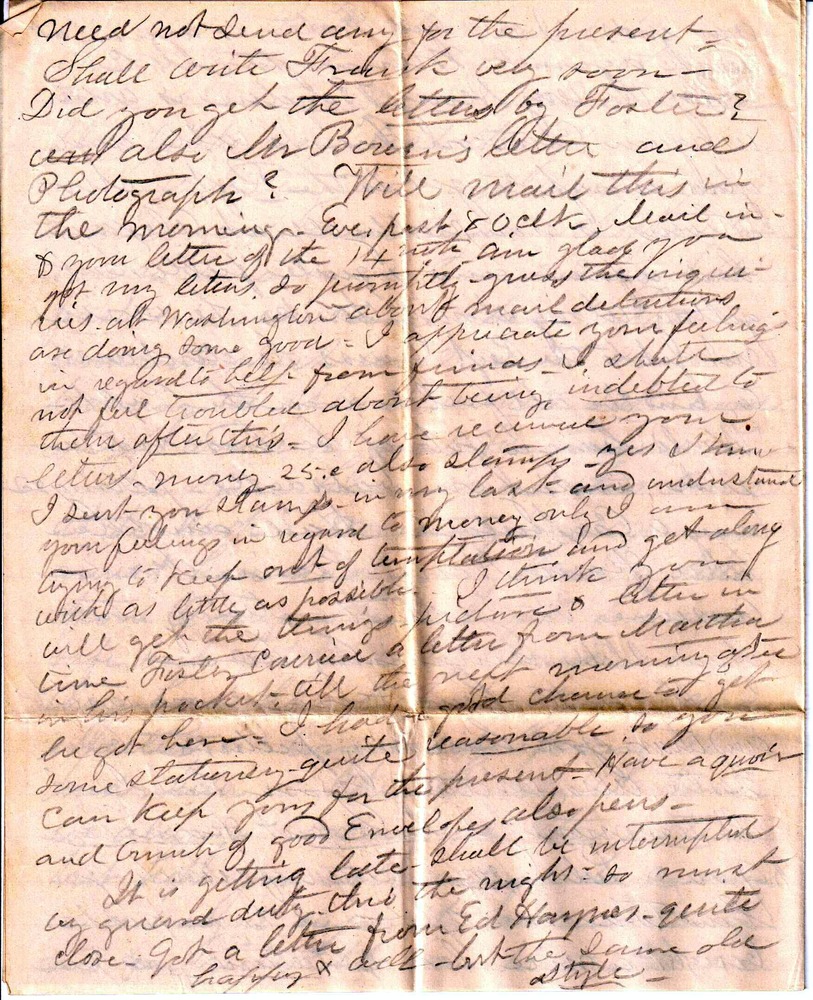 need not send any for the present,
Shall write Frank very soon -
Did you get the letters by Foster?
and also Mr Bowen's letter and
Photograph? Will mail this in
the morning. Eve, past 8 Oclk. Mail in -
& your letter of the 14 inst. am glad you
got my letters so promptly - guess the inqui-
ries at Washington about mail detentions
are doing some good - I appriciate your feelings
in regard to help from friends - I shall
not feel troubled about being indebted to
them after this - I have received your
letter - money 25.c also stamps - yes I know
I sent you stamps in my last - and understand
your feelings in regard to money only I am
trying to keep out of temptation and get along
with as little as possible. I think you
will get the things - picture & letter in
time Foster carried a letter from Martha
in his pocket, till the next morning after
he got here - I had a good chance to get
some stationery - quite reasonable. so you
can keep yours for the present - Have a quire
and bunch of good Envelopes also pens -
It is getting late - shall be interrupted
by guard duty - thro the night - so must
close. Got a letter from Ed Haynes - quite
happy & well - but the same old
style -